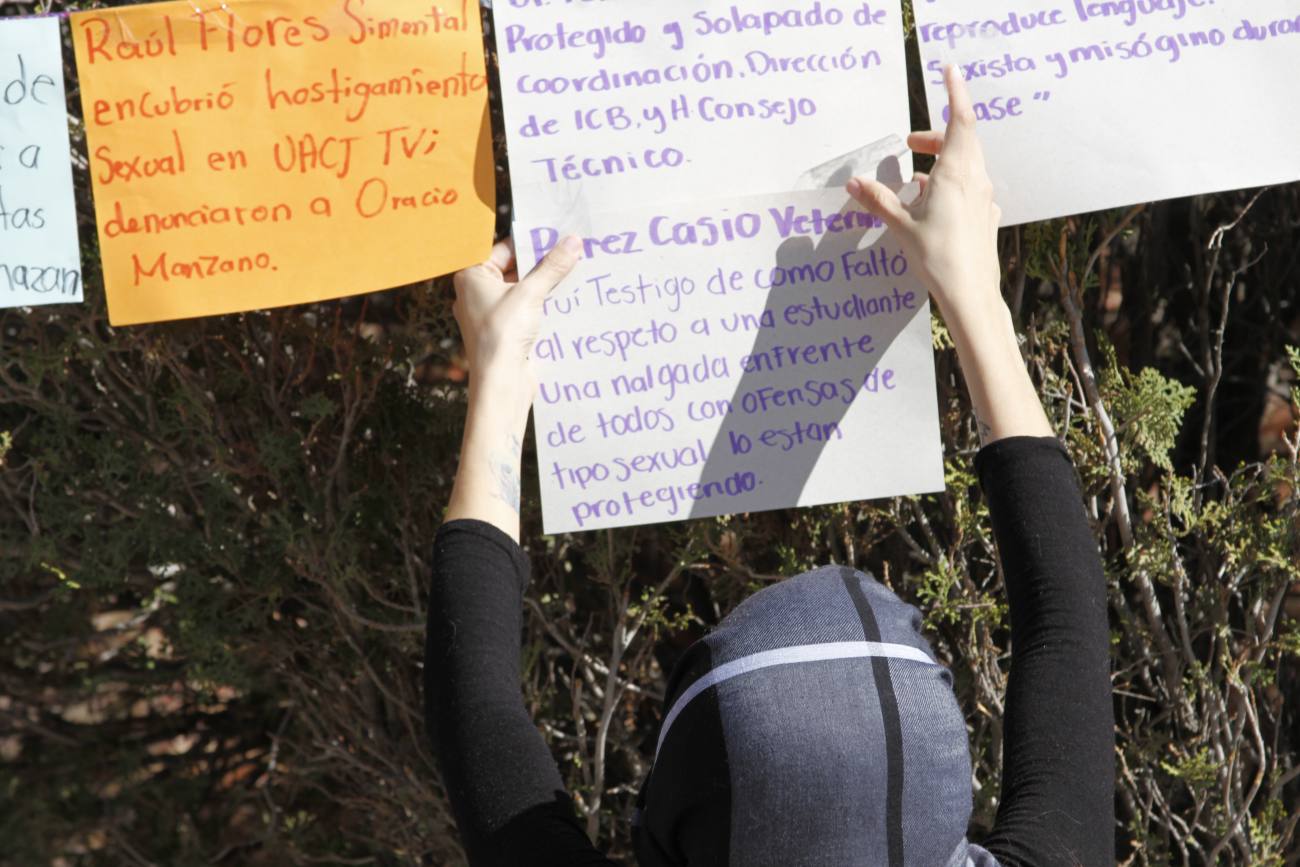 de
a
tas
hazan
Raúl Flores Simental
encubrió hostigamiento
Sexual en UACJ TV;
denunciaron a Oracio
Manzano.
Protegido y Solapado de
Coordinación. Dirección
de ICB, y H. Consejo
Técnico.
Perez Casio
Fuí Testigo de como Faltó
al respeto a una estudiante
una nalgada enfrente
de todos con oFensas de
tipo sexual lo estan
protegiendo.
reproduce lenguaje
Sexista y misógino
clase "